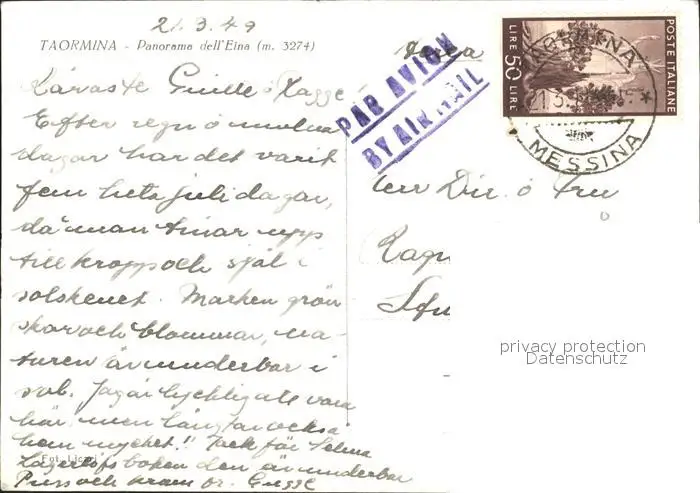 21.3.49
TAORMINA - Panorama dell'Etna (m. 3274)
Käraste Gulle o Ragge
Efter regn o mulna
dagar har det varit
fem heta juli dagar,
då man tinar upp
till kropp och själ i
solskenet. Marken grön
skar och blommar, na-
turen är underbar i
sol. Jag är lycklig att vara
här men längtar också
hem mycket!! Tack för Selma
Lagerlöfs boken den är underbar
Puss och kram
Fot.
PAR AVION
BY AIR MAIL
POSTE ITALIANE
LIRE 50 LIRE
MESSINA
Herr Dir. o Fru
Ragn
privacy protection
Datenschutz